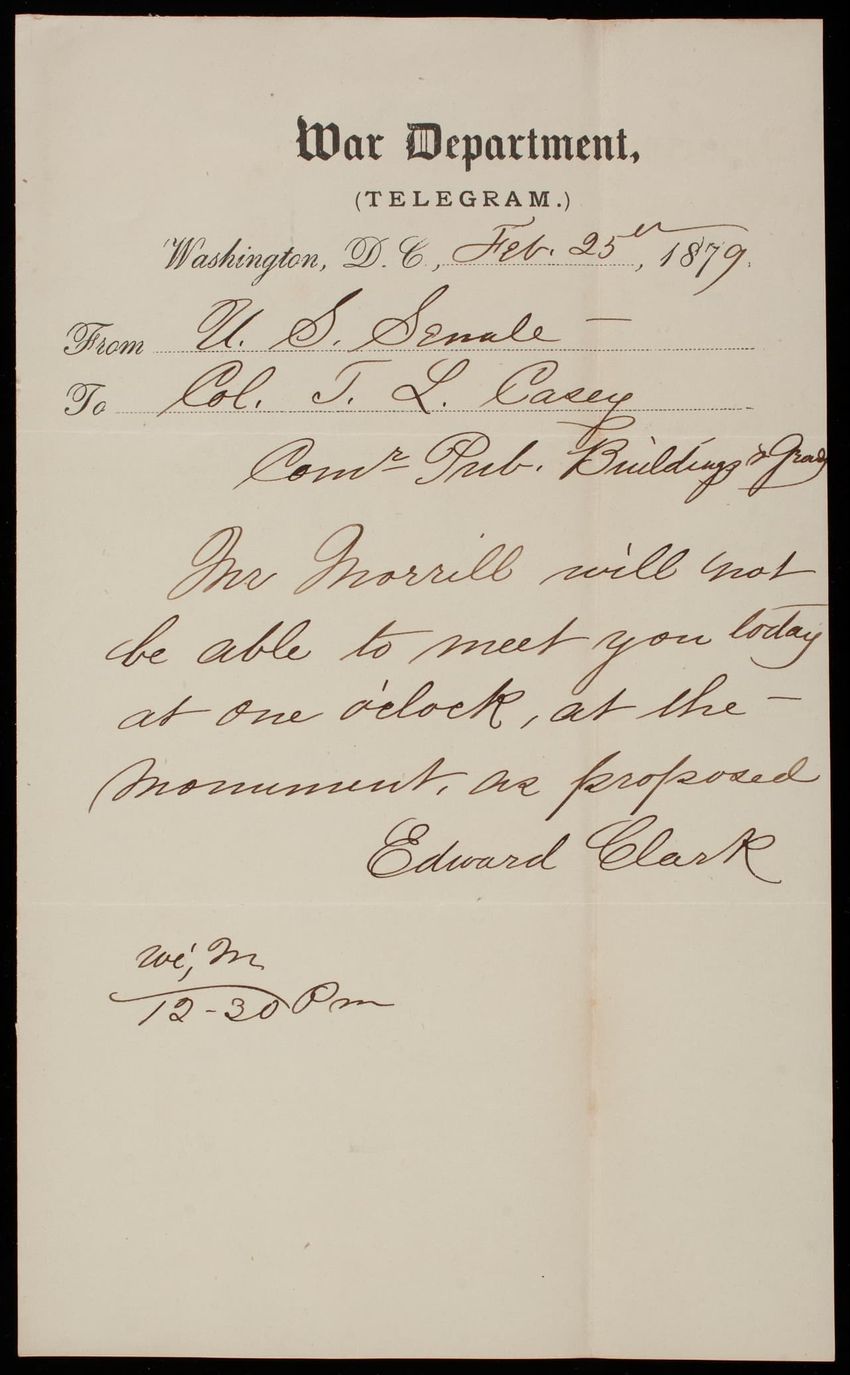 War Department,
(TELEGRAM.)
Washington, D. C., Feb. 25th, 1879.
From U. S. Senate —
To Col. T. L. Casey
Comr Pub. Buildings & Grds
Mr Morrill will not
be able to meet you today
at one o'clock, at the —
monument, as proposed
Edward Clark
12-30 Pm